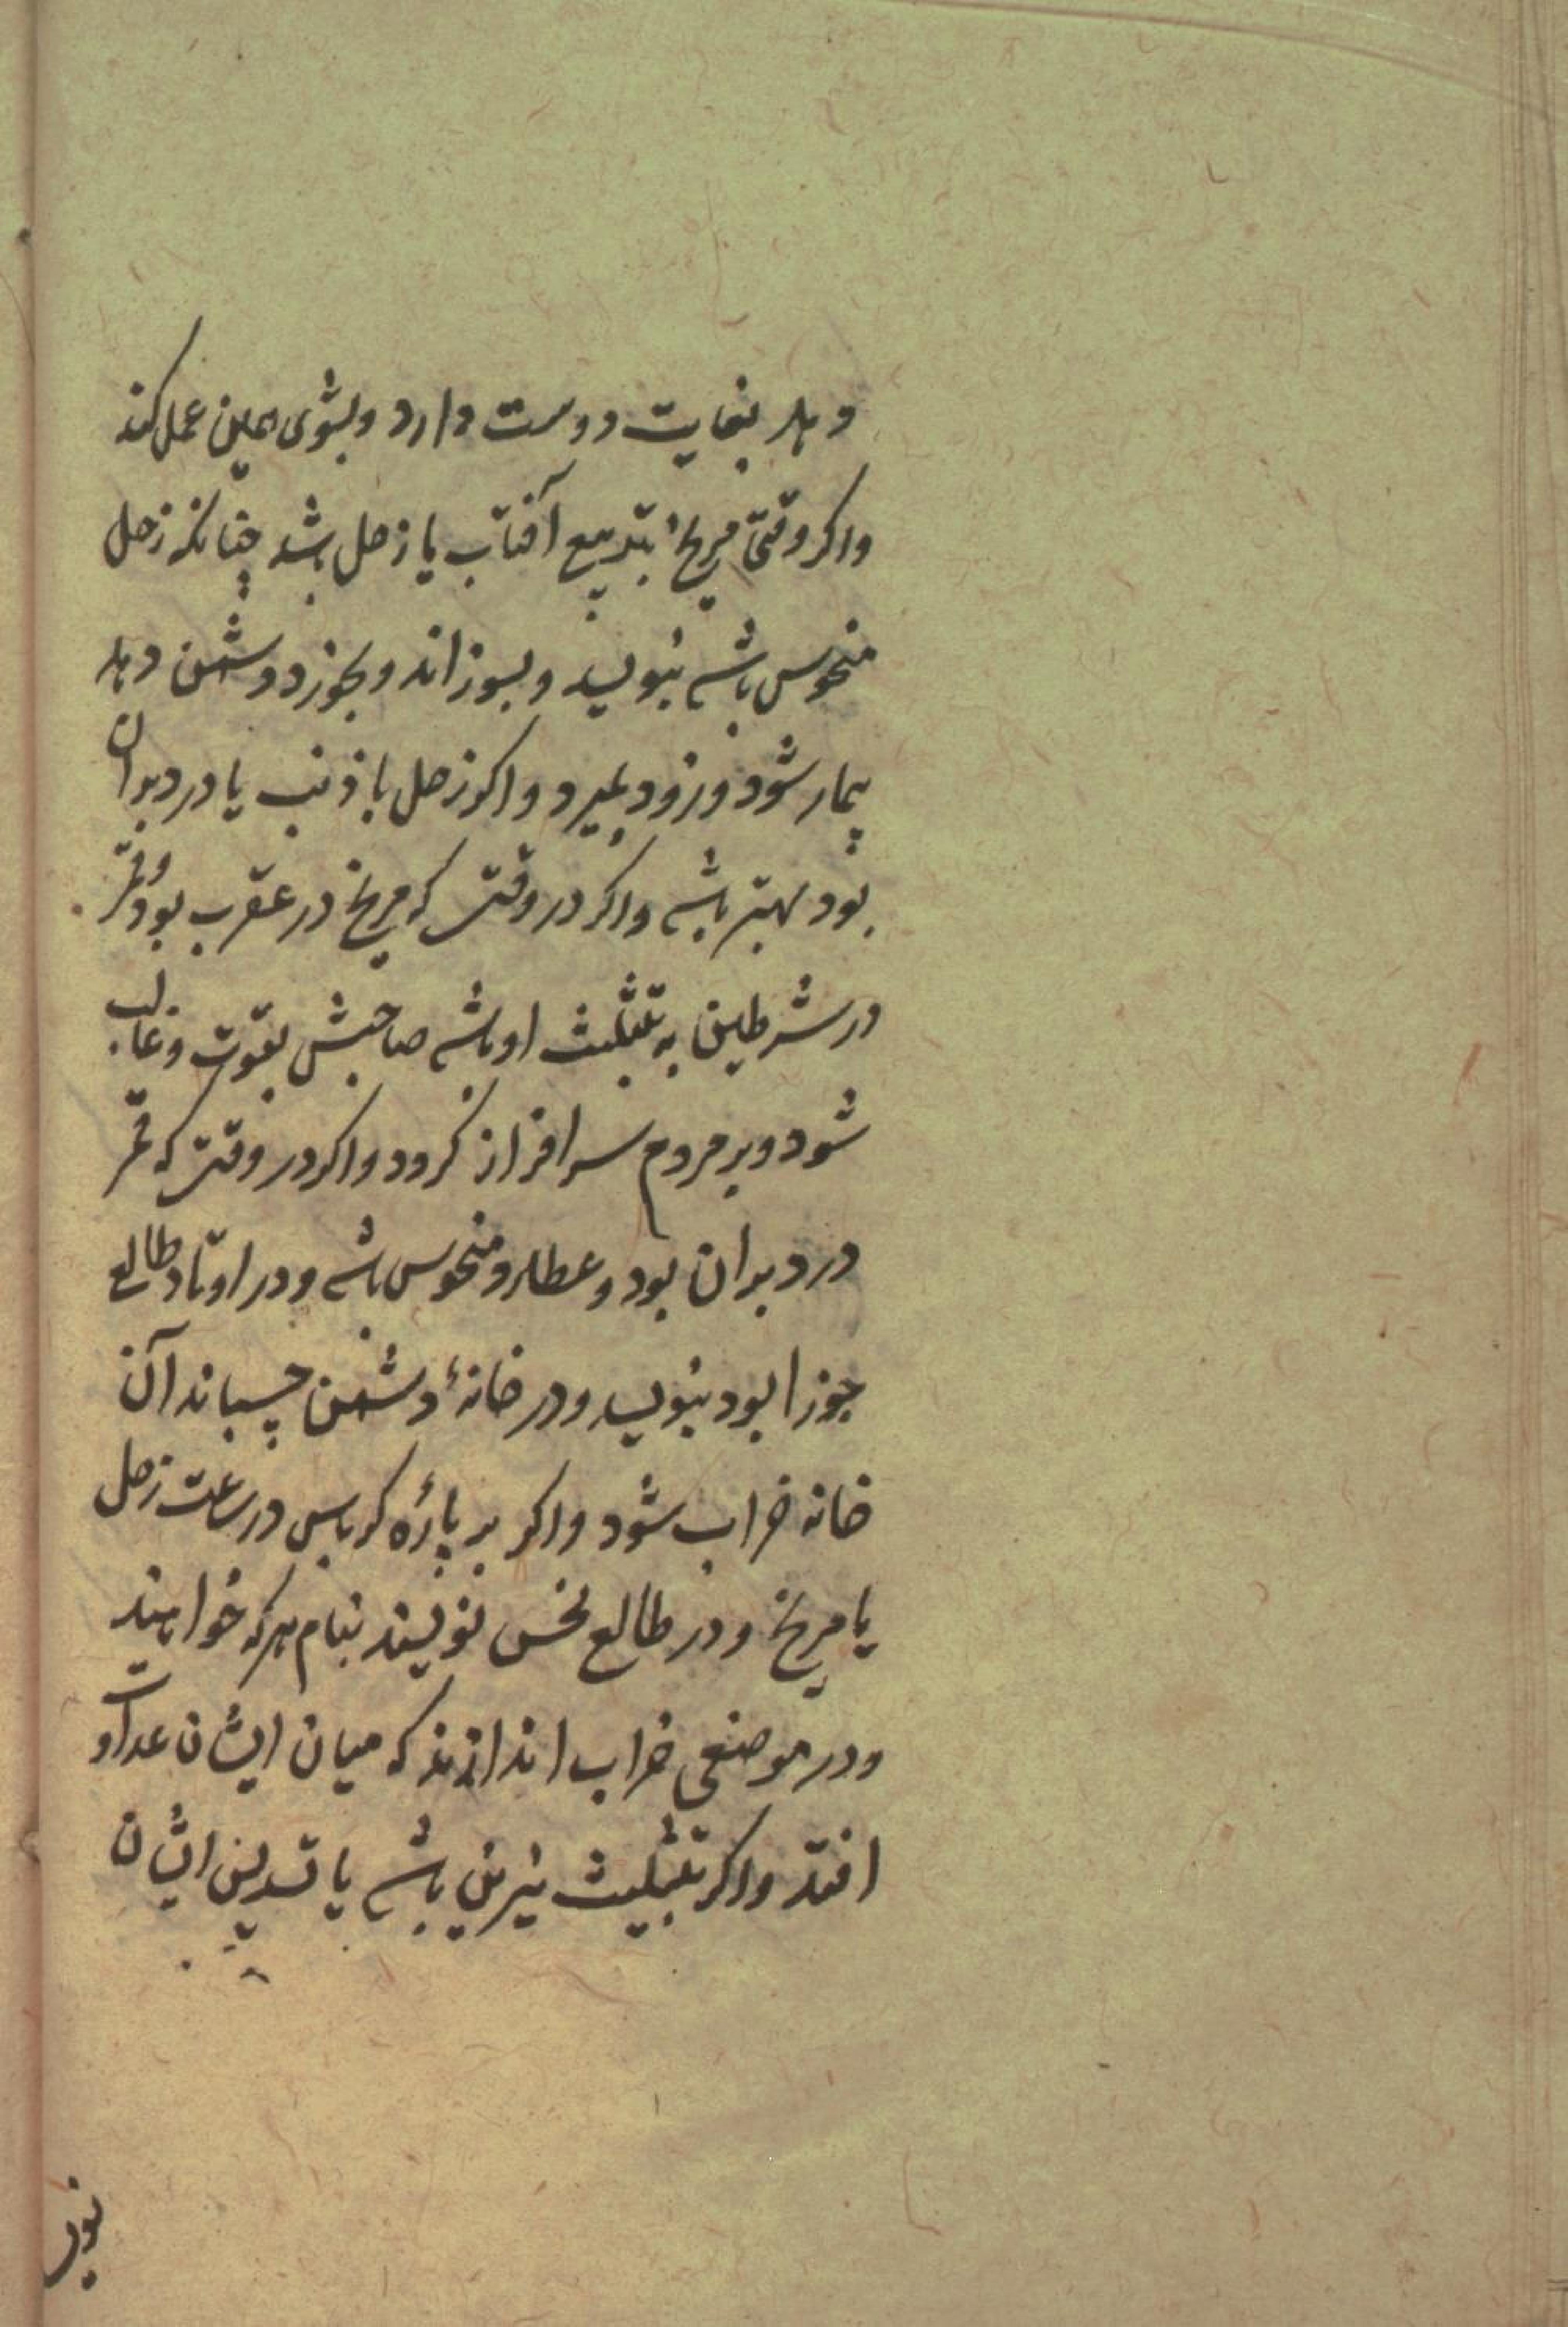 دهد بغایت دوست دارد و بشوی همین عمل کند
واکر وقتی مریخ بتربیع آفتاب یا زحل باشد چنانکه زحل
منحوس باشد بنویسد و بسوزاند و بخورد دشمن دهد
بیمار شود و زود بمیرد واکر زحل با ذنب یا در دبران
بود بهتر باشد واکر در وقتی که مریخ در عقرب بود و قمر
در شرطین به تثلیث او باشد صاحبش بقوت و غالب
شود و بر مردم سرافراز کردد واکر در وقتی که قمر
در دبران بود و عطارد منحوس باشد و در اوتاد طالع
جوزا بود بنویسد و در خانهٔ دشمن چسباند آن
خانه خراب شود واکر بر پارهٔ کرباس در ساعت زحل
یا مریخ و در طالع نحس نویسند بنام هرکه خواهند
و در موضعی خراب اندازند که میان ایشان عداوت
افتد واکر تثلیث نیرین باشد یا تسدیس ایشان